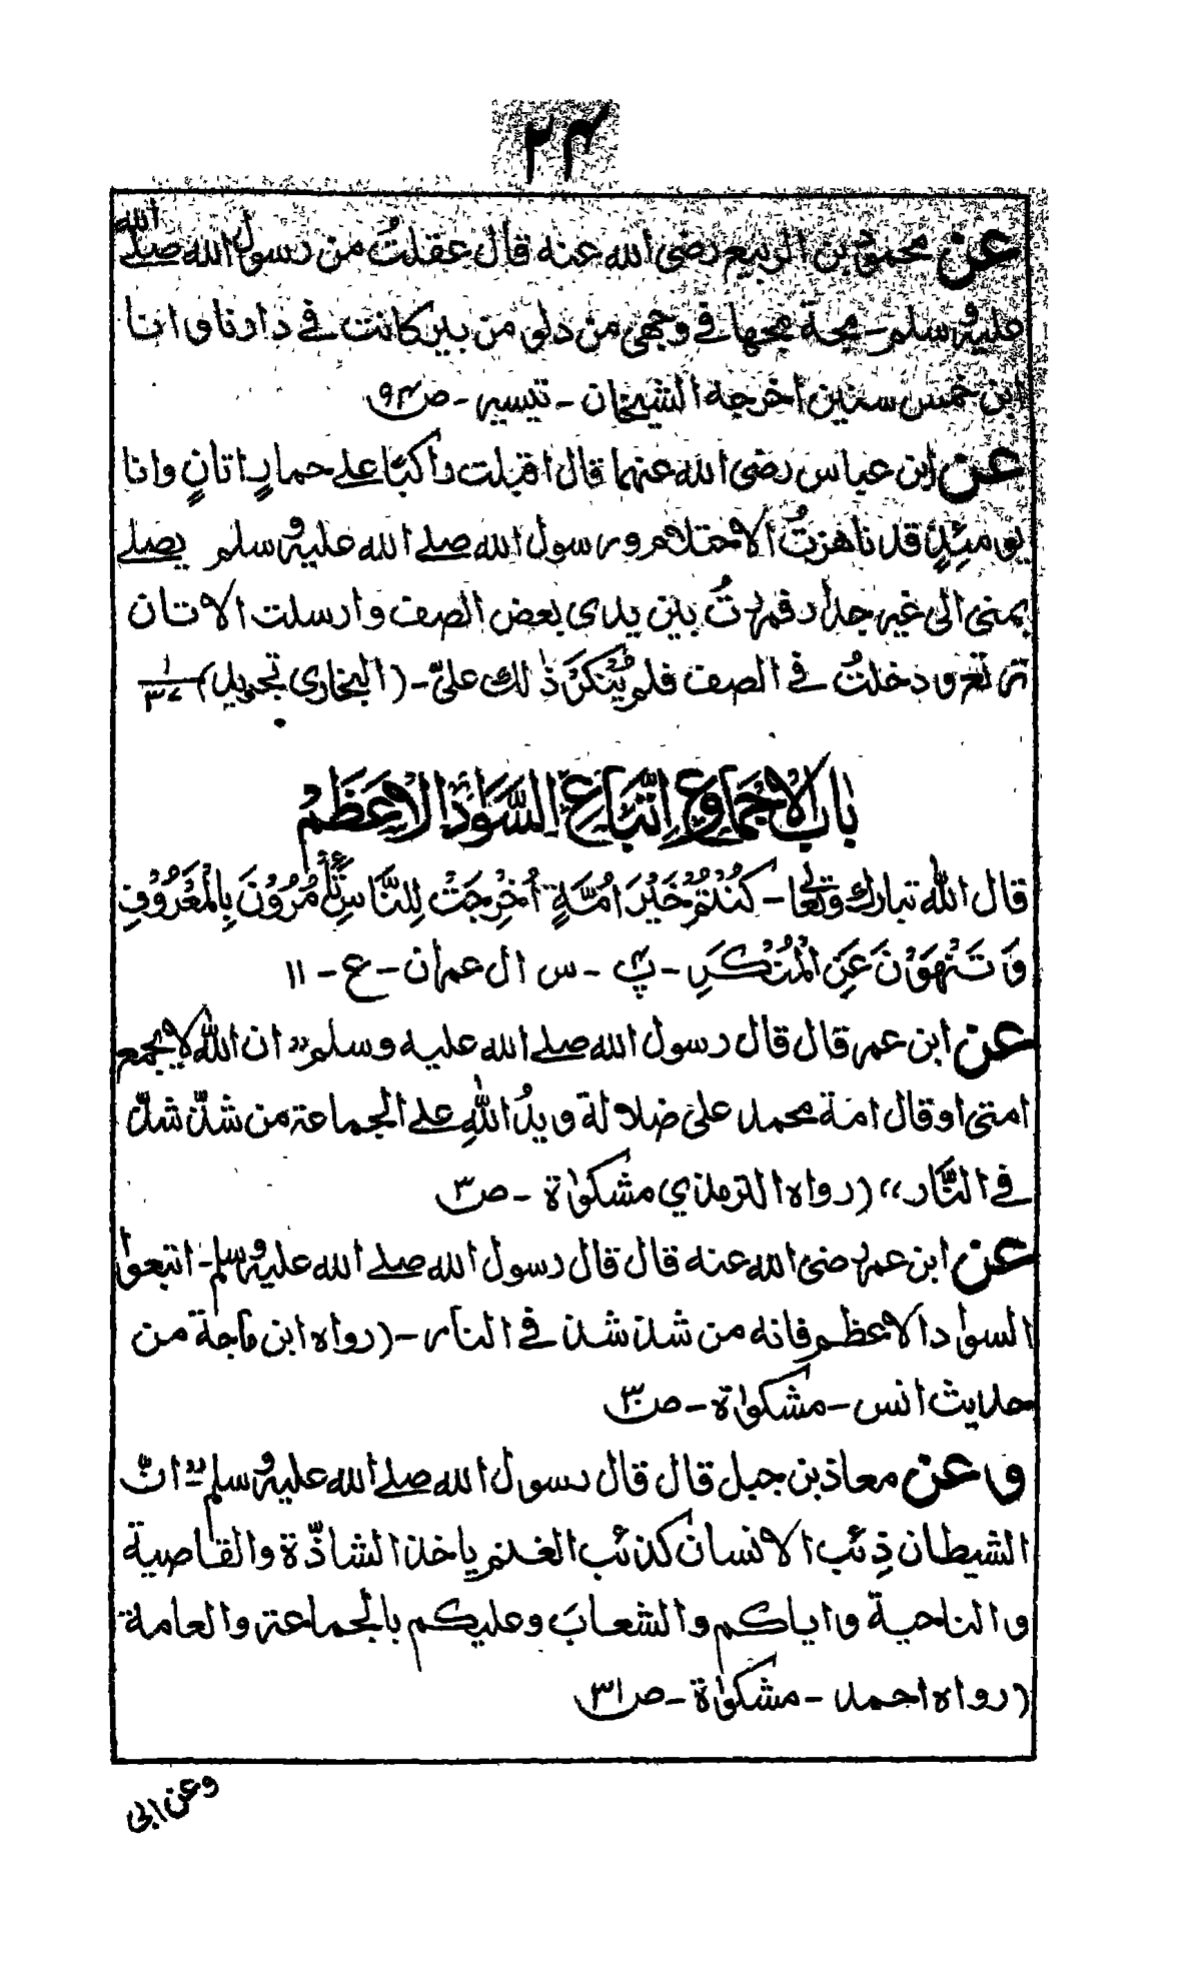 ۲۴
عن محمود بن الربيع رضی الله عنه قال عقلتُ من رسول الله صلے الله
عليه وسلم - مجة مجها في وجهي من دلو من بير كانت في دارنا و انا
ابن خمس سنين اخرجه الشيخان - تيسير - ص ۹۴
عن ابن عباس رضی الله عنهما قال اقبلت راكبًا علے حمارٍ اتانٍ وانا
يومئِذٍ قد ناهزتُ الاحتلام و رسول الله صلے الله عليه وسلم يصلے
بمنی الی غير جدار فمررتُ بين يدی بعض الصف وارسلت الاتان
ترتع و دخلتُ في الصف فلم يُنكَر ذٰلك علیّ - (البخاری تجريد)
باب الاجماع و اِتّبَاع السَّوَاد الاَعظَم
قال الله تبارك وتعالیٰ - كُنْتُمْ خَيْرَ اُمَّةٍ اُخْرِجَتْ لِلنَّاسِ تَأْمُرُوْنَ بِالْمَعْرُوْفِ
وَ تَنْهَوْنَ عَنِ الْمُنْكَرِ - پ۴ - س ال عمران - ع - ۱۱
عن ابن عمر قال قال رسول الله صلے الله عليه وسلم "ان الله لا يجمع
امتی او قال امة محمد علیٰ ضلالة و يدُ اللهِ علے الجماعة من شذّ شذّ
في النّار" (رواه الترمذي مشكوٰة - ص ۳۰
عن ابن عمر رضی الله عنه قال قال رسول الله صلے الله عليه وسلم - اتبعوا
السواد الاعظم فانه من شذ شذ في النار - (رواه ابن ماجة من
حديث انس - مشكوٰة - ص ۳۰
و عن معاذ بن جبل قال قال رسول الله صلے الله عليه وسلم "انّ
الشيطان ذِئب الانسان كذئب الغنم ياخذ الشاذّة والقاصية
و الناحية و اياكم والشعابَ وعليكم بالجماعة والعامة
(رواه احمد - مشكوٰة - ص ۳۱
وعن ابی